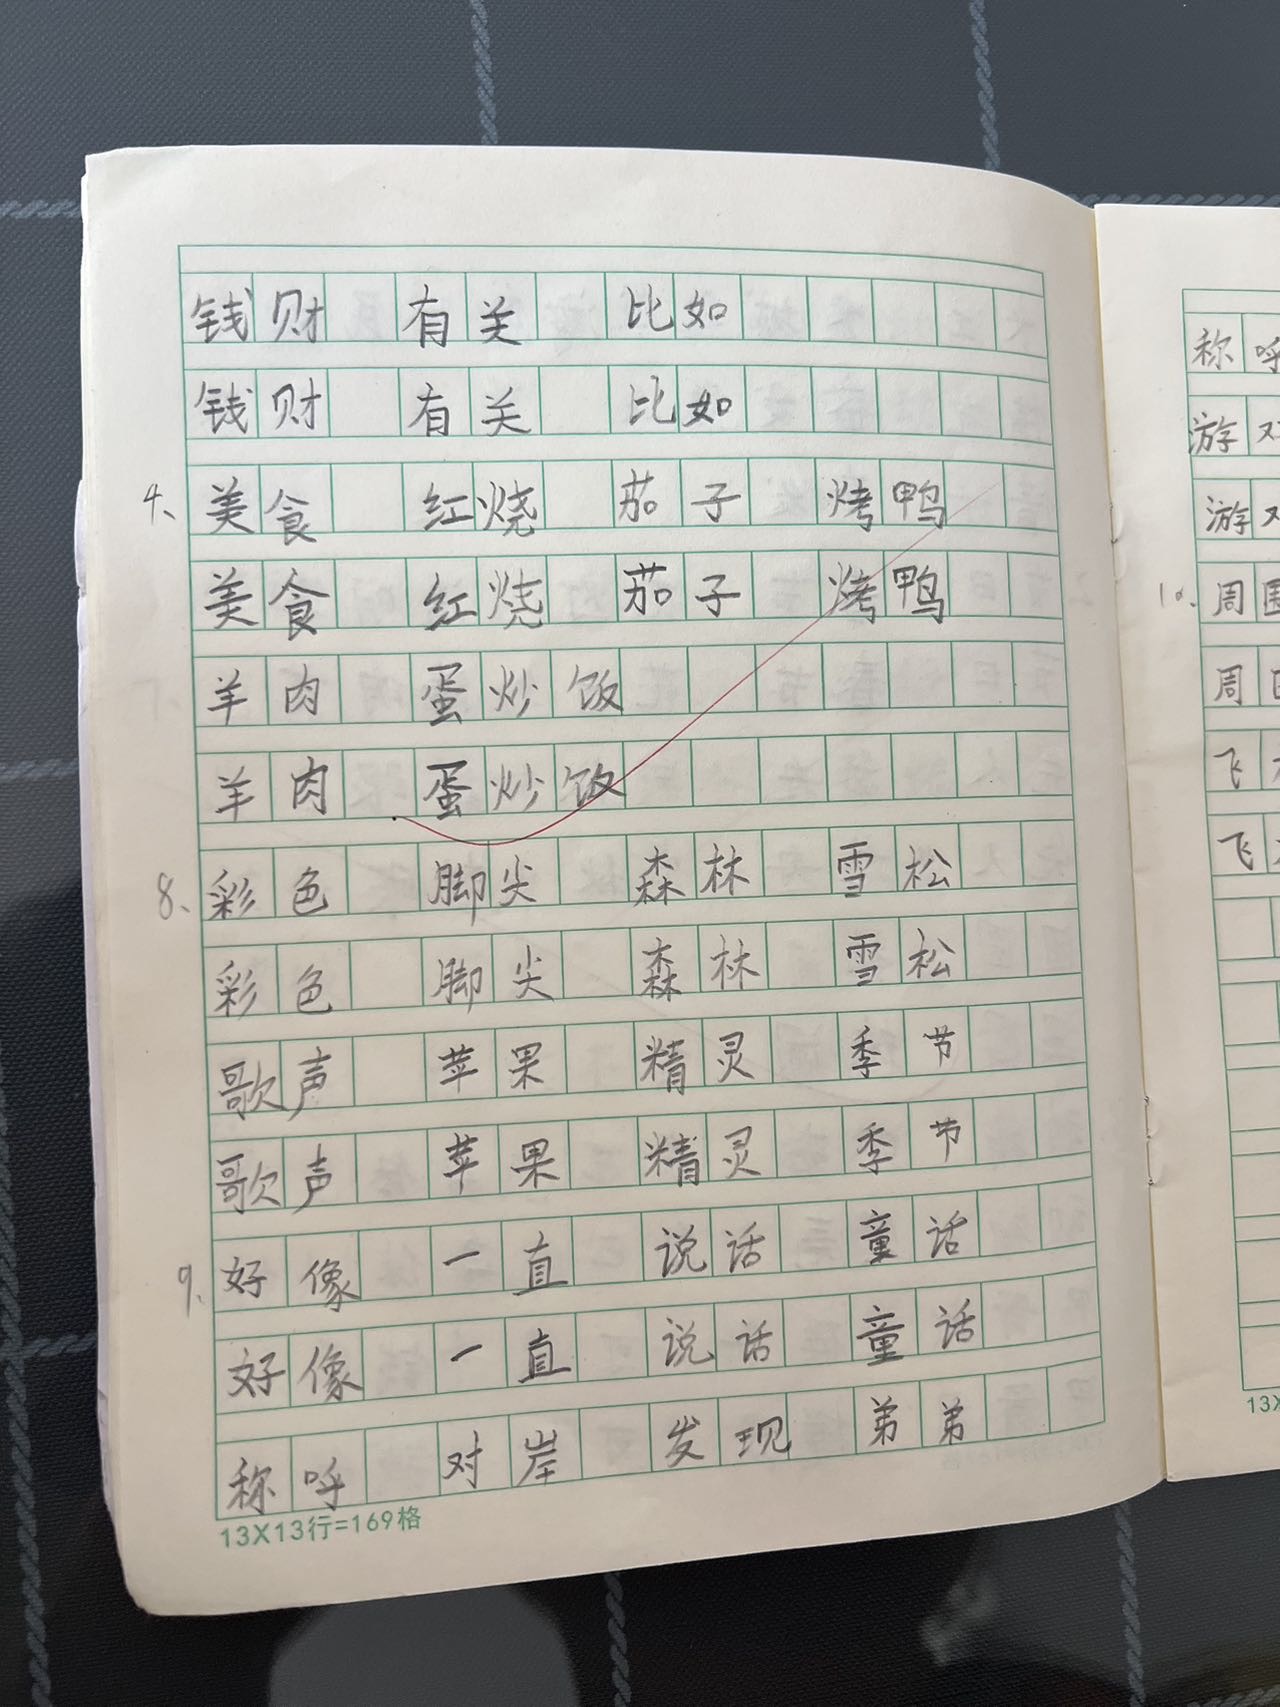 钱财 有关 比如
钱财 有关 比如
4、美食 红烧 茄子 烤鸭
美食 红烧 茄子 烤鸭
羊肉 蛋炒饭
羊肉 蛋炒饭
8、彩色 脚尖 森林 雪松
彩色 脚尖 森林 雪松
歌声 苹果 精灵 季节
歌声 苹果 精灵 季节
9、好像 一直 说话 童话
好像 一直 说话 童话
称呼 对岸 发现 弟弟
13X13行=169格
称呼
游
游
10、周围
周
飞
飞
13X